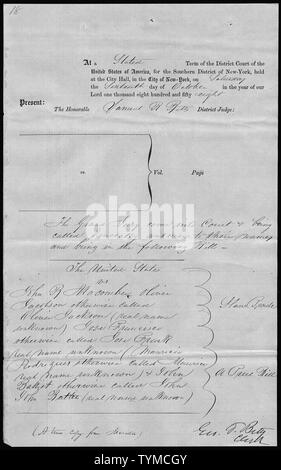 18
At a Stated Term of the District Court of the
United States of America, for the Southern District of New-York, held
at the City Hall, in the City of New-York, on Saturday
the Sixteenth day of October in the year of our
Lord one thousand eight hundred and fifty eight
Present:
The Honorable Samuel R Betts District Judge:
vs. Vol. Page
The Grand Jury come into Court & being
called answer to their names
and bring in the following Bills
The United States
vs
John R Macomber Oliver
Jackson otherwise called
Oliver Jackson (real name
unknown) Jose Francisco
otherwise called Jose Frank
(real name unknown) Mauricio
Rodriguez otherwise called
(real name unknown) & John
otherwise called John
John (real name unknown)
Slave Trade
A True Bill
(A true copy from Minutes)
Geo. F. Betts
Clerk
alamy
TYMCGY